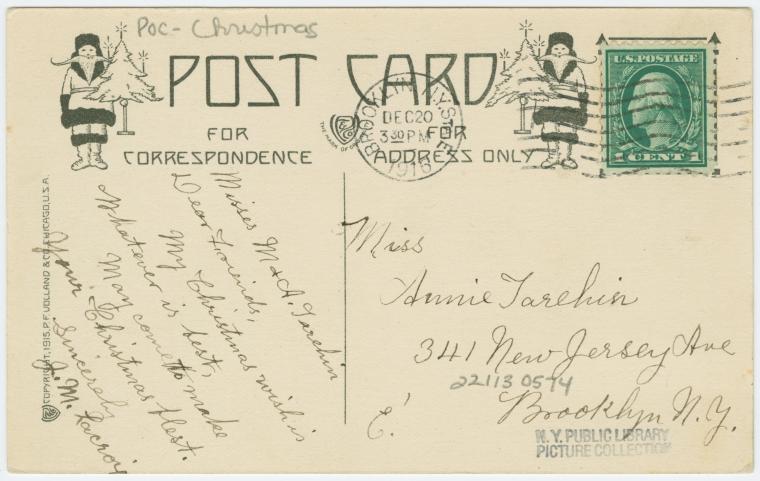 Poc- Christmas
POST CARD
FOR CORRESPONDENCE
FOR ADDRESS ONLY
U.S. POSTAGE
1 CENT 1
BROOKLYN N.Y. STA. E
DEC 20
3 30 PM
1916
THE MARK OF
COPYRIGHT, 1915, P.F. VOLLAND & CO. CHICAGO, U.S.A.
Misses M & A. Tarehin
Dear Friends,
My Christmas wish is
Whatever is best,
May come to make
Your Christmas blest.
Sincerely
J. M. Lacroix
Miss
Annie Tarehin
341 New Jersey Ave
Brooklyn N.Y.
E.'
22113 0574
N.Y. PUBLIC LIBRARY
PICTURE COLLECTION